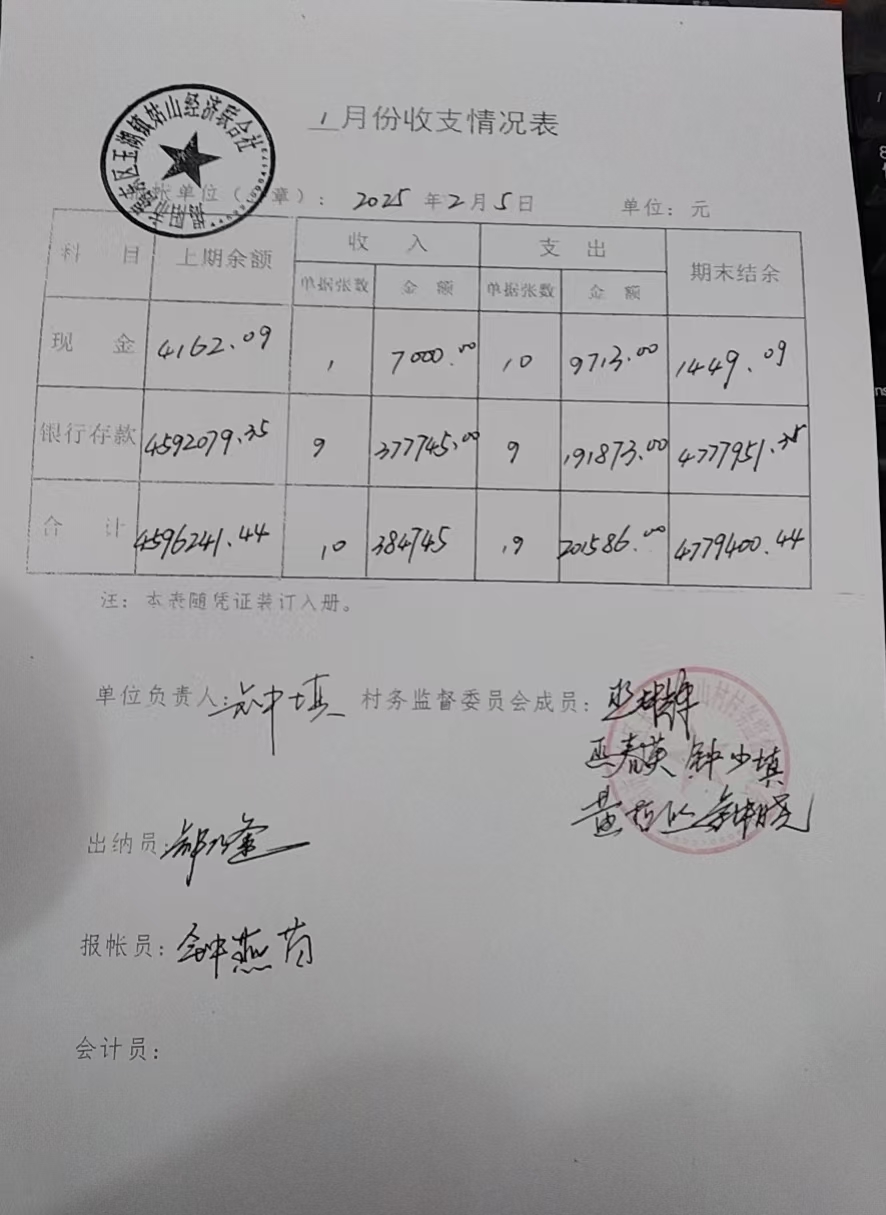 1月份收支情况表
揭阳市揭东区玉湖镇姑山经济联合社
帐单位（ 章）： 2025 年 2 月 5 日 单位：元
科 目 上期余额 收 入 支 出 期末结余
单据张数 金 额 单据张数 金 额
现 金 4162.09 1 7000.00 10 9713.00 1449.09
银行存款 4592079.35 9 377745.00 9 191873.00 4777951.35
合 计 4596241.44 10 384745 19 201586.00 4779400.44
注：本表随凭证装订入册。
单位负责人： 村务监督委员会成员：
巫春英 钟少填
黄
出纳员：
报帐员：钟燕
会计员：